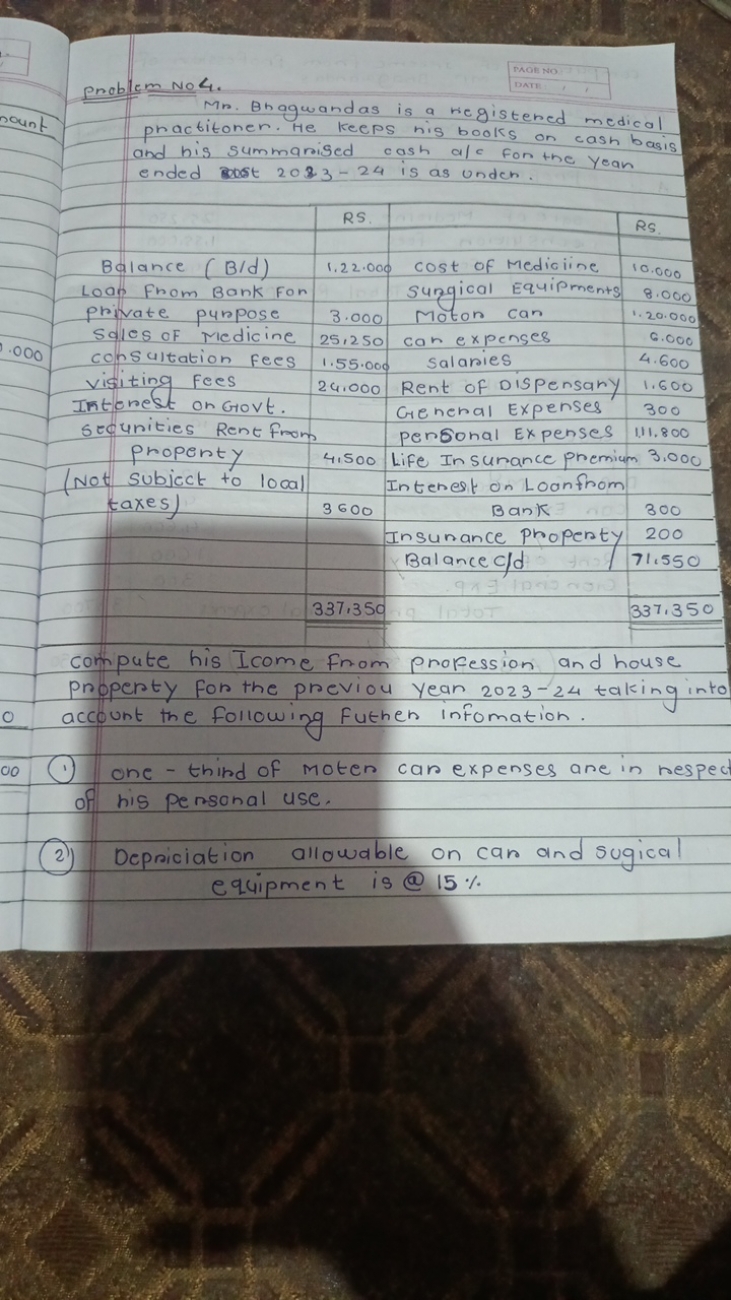 PAGE NO.
DATE / /
Problem No 4.
Mr. Bhagwandas is a registered medical
practitoner. He keeps his books on cash basis
and his summarised cash a/c for the year
ended 2023-24 is as under.
RS. RS.
Balance (B/d) 1.22.000 cost of Mediciine 10.000
Loan from Bank for surgical Equipments 8.000
private purpose 3.000 Motor car 1.20.000
sales of Medicine 25,250 car expenses 6.000
consultation Fees 1.55.000 salaries 4.600
visiting Fees 24,000 Rent of Dispensary 1.600
Interest on Govt. General Expenses 300
securities Rent from personal Expenses 1,11,800
property 4,500 Life Insurance premium 3,000
(Not subject to local Interest on Loan from
taxes) 3600 Bank 300
Insurance Property 200
Balance c/d 71,550
337,350 337,350
compute his Icome from profession and house
property for the previou year 2023-24 taking into
account the following futher infomation.
1) one - third of moter car expenses are in respec
of his personal use.
2) Depriciation allowable on car and sugical
equipment is @ 15 %
ount
.000
0
00